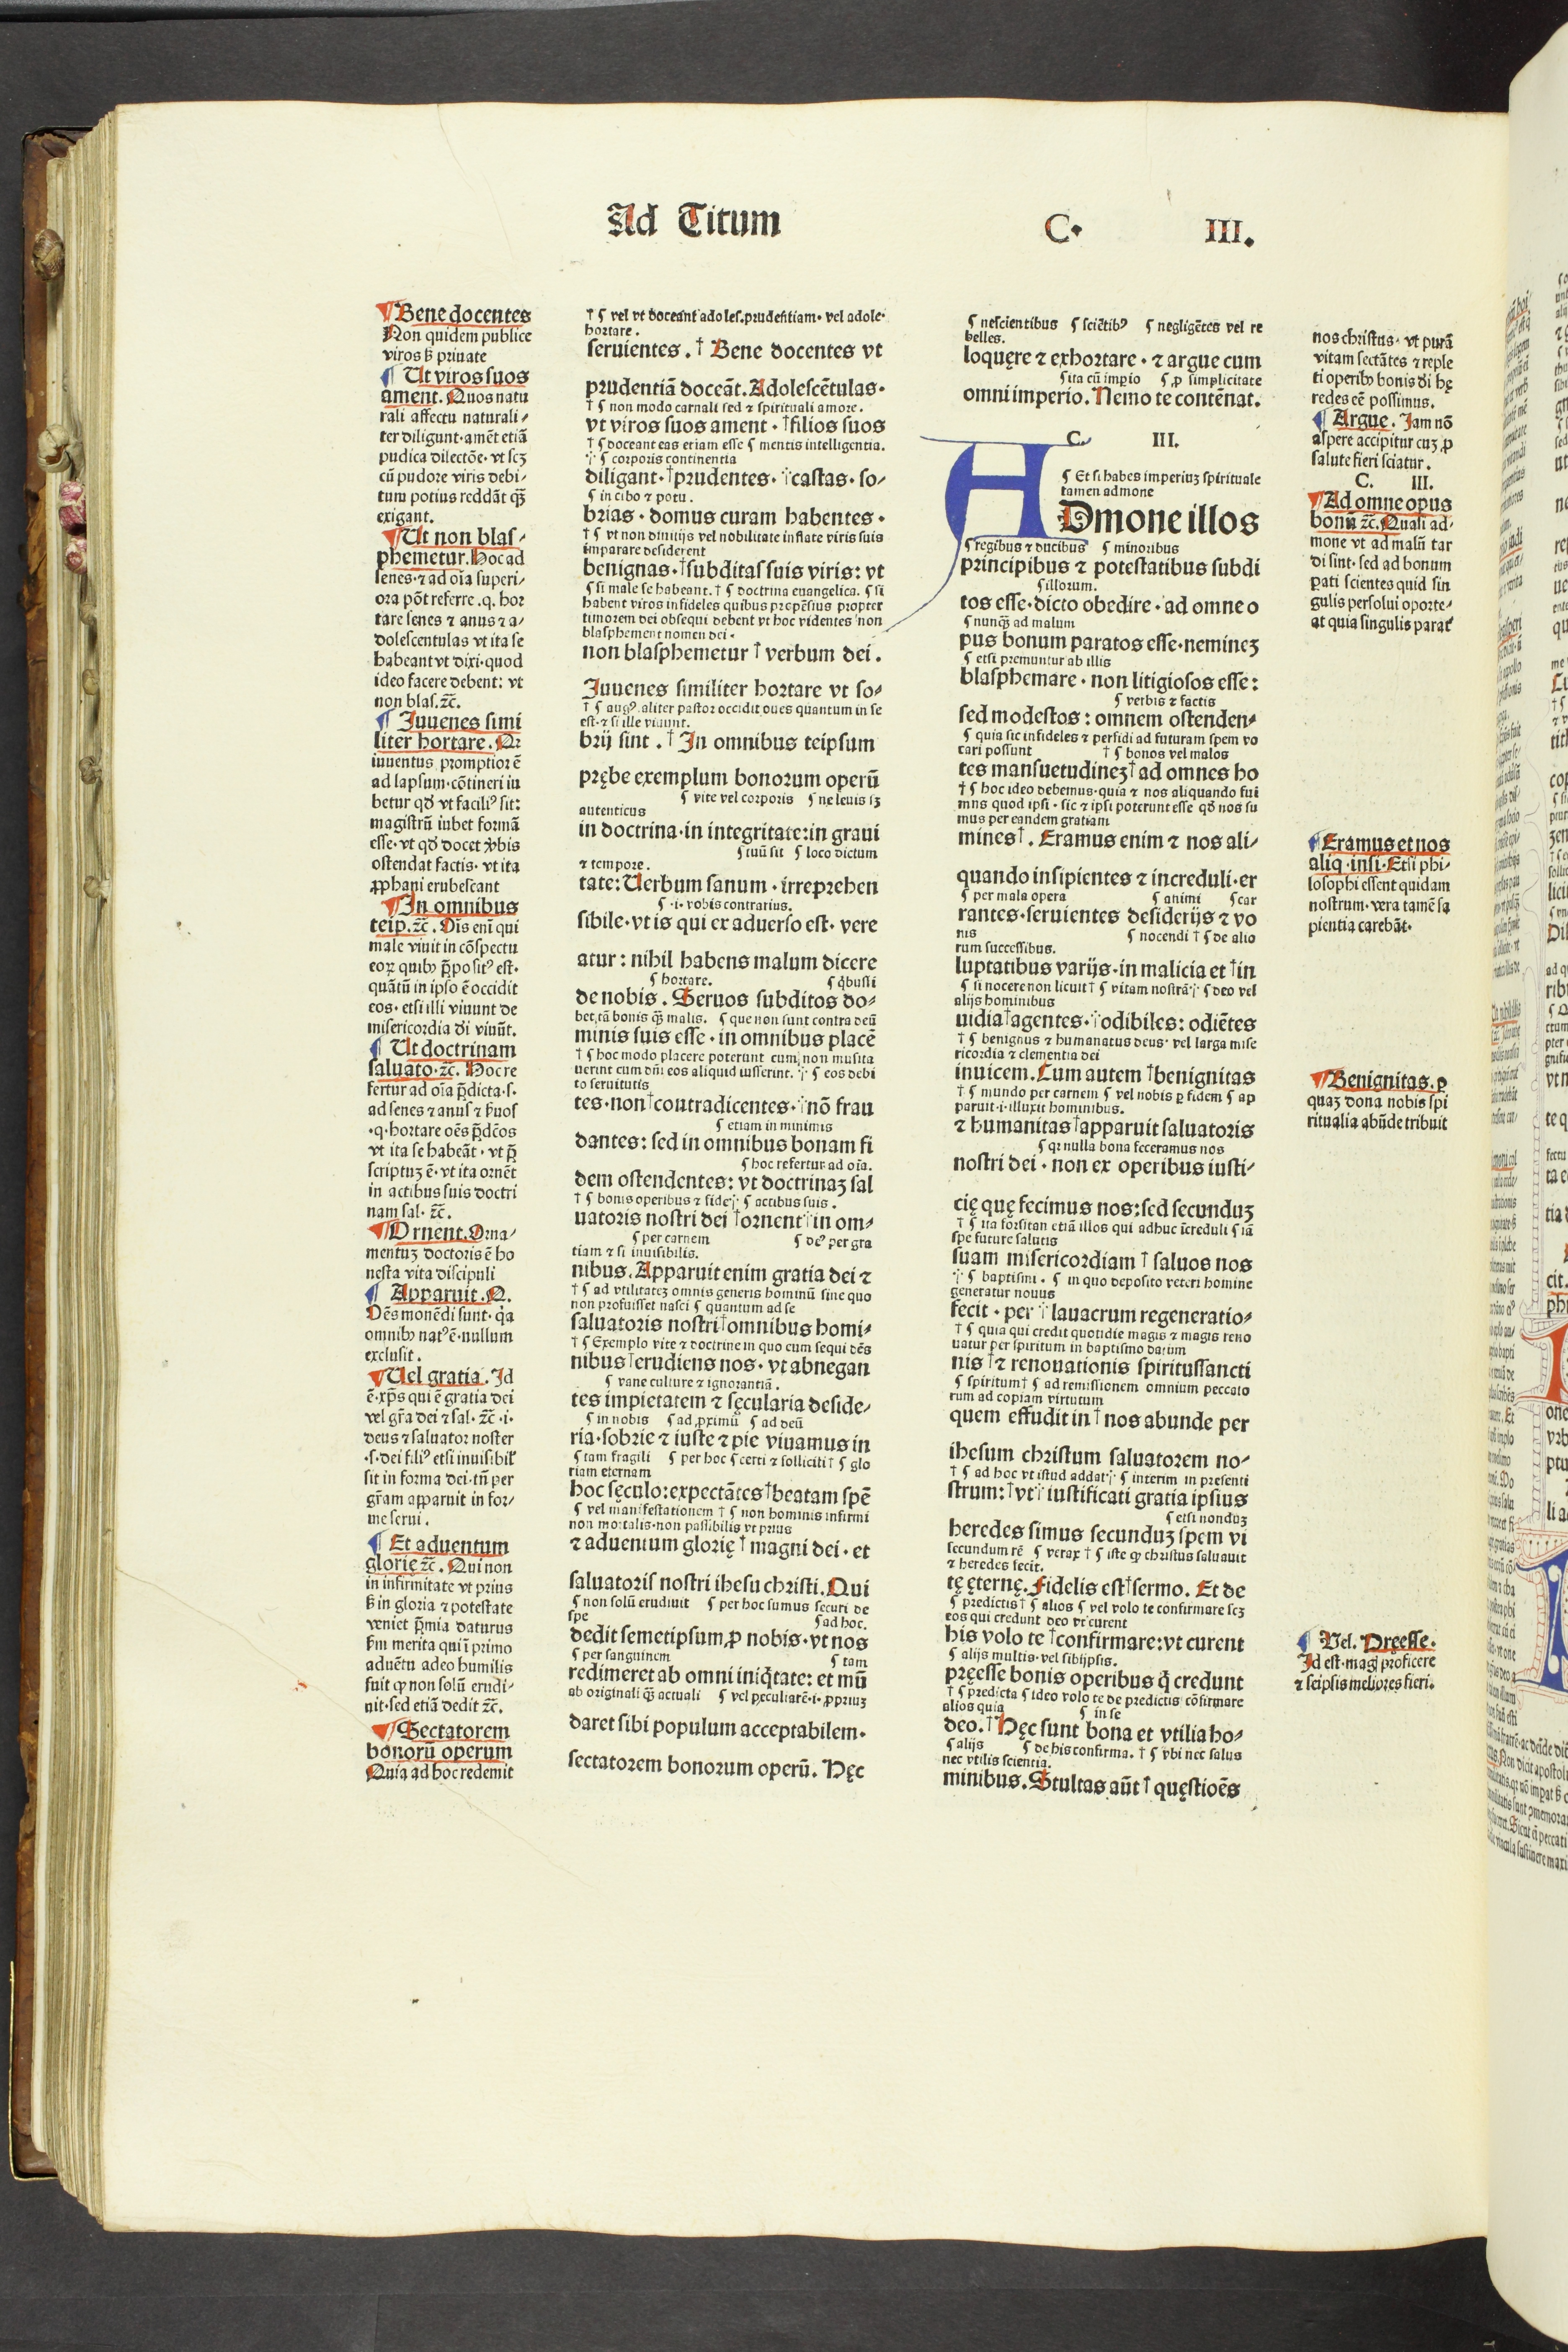 Ad Titum
C. III.
¶ Bene docentes
Non quidem publice
viros ẜ priuate
¶ Ut viros suos
ament. Quos natu
rali affectu naturali⸗
ter diligunt· amēt etiā
pudica dilectōe· vt scꝫ
cū pudore viris debi⸗
tum potius reddāt qꝫ̄
exigant.
¶ Ut non blas⸗
phemetur. Hoc ad
senes· ⁊ ad oīa superi⸗
ora pōt referre .q. hor
tare senes ⁊ anus ⁊ a⸗
dolescentulas vt ita se
habeant vt dixi· quod
ideo facere debent: vt
non blas. ⁊c̄.
¶ Juuenes simi
liter hortare. Qr
iuuentus promptior ē
ad lapsum· cōtineri iu
betur qđ vt faciliꝰ sit:
magistrū iubet formā
esse· vt qđ docet v̓bis
ostendat factis· vt ita
ꝓphani erubescant
¶ In omnibus
teip. ⁊c̄. Ois enī qui
male viuit in cōspectu
eoꝝ quibꝰ p̄positꝰ est·
quātū in ipso ē occidit
eos· etsi illi viuunt de
misericordia di viuūt.
¶ Ut doctrinam
saluato· ⁊c̄. Hoc re
fertur ad oīa p̄dicta·s·
ad senes ⁊ anus ⁊ ẜuos
·q· hortare oēs p̄dc̄os
vt ita se habeāt · vt p̄
scriptuꝫ ē· vt ita ornēt
in actibus suis doctri
nam sal· ⁊c̄.
¶ Ornent. Orna⸗
mentuꝫ doctoris ē ho
nesta vita discipuli
¶ Apparuit. Q.
Oēs monēdi sunt· qͥa
omnibꝰ natꝰ ē· nullum
exclusit.
¶ Uel gratia. Id
ē· xp̄s qui ē gratia dei
vel gr̄a dei ⁊ sal· ⁊c̄ ·i·
deus ⁊ saluator noster
·s· dei filiꝰ etsi inuisibil̓
sit in forma dei· tn̄ per
gr̄am apparuit in for⸗
me serui.
¶ Et aduentum
glorie ⁊c̄. Qui non
in infirmitate vt prius
ẜ in gloria ⁊ potestate
veniet p̄mia daturus
ẜm merita qui ī primo
aduētu adeo humilis
fuit ꝙ non solū erudi⸗
uit· sed etiā dedit ⁊c̄.
¶ Sectatorem
bonorū operum
Quia ad hoc redemit
† ¶ vel vt doceant adoles.prudentiam· vel adole·
hortare.
seruientes. † Bene docentes vt
prudentiā doceāt. Adolescētulas·
† ¶ non modo carnali sed ⁊ spirituali amore.
vt viros suos ament · †filios suos
† ¶ doceant eas etiam esse ¶ mentis intelligentia.
⸪ ¶ corporis continentia
diligant· †prudentes· ⸪castas· so⸗
¶ in cibo ⁊ potu.
brias · domus curam habentes ·
† ¶ vt non diuitijs vel nobilitate inflate viris suis
imparare desiderent
benignas· †subditas suis viris: vt
¶ si male se habeant. † ¶ doctrina euangelica. ¶ si
habent viros infideles quibus propēsius propter
timorem dei obsequi debent vt hoc videntes non
blasphement nomen dei·
non blasphemetur † verbum dei.
Iuuenes similiter hortare vt so⸗
† ¶ augꝰ. aliter pastor occidit oues quantum in se
est· ⁊ si ille viuunt.
brij sint . † In omnibus teipsum
prębe exemplum bonorum operū
¶ vite vel corporis ¶ ne leuis sꝫ
autenticus
in doctrina· in integritate: in graui
¶ tuū sit ¶ loco dictum
⁊ tempore.
tate: Uerbum sanum · irreprehen
¶ ·i· vobis contrarius.
sibile· vt is qui ex aduerso est· vere
atur : nihil habens malum dicere
¶ hortare. ¶ qͥbusli
de nobis . Seruos subditos do⸗
bet, tā bonis qꝫ̄ malis. ¶ que non sunt contra deū
minis suis esse · in omnibus placē
† ¶ hoc modo placere poterunt cum non musita
uerint cum dn̄i eos aliquid iusserint. ⸪ ¶ eos debi
to seruitutis
tes· non †contradicentes· ⸪nō frau
¶ etiam in minimis
dantes: sed in omnibus bonam fi
¶ hoc refertur ad oīa.
dem ostendentes: vt doctrinaꝫ sal
† ¶ bonis operibus ⁊ fide ⸪ ¶ actibus suis .
uatoris nostri dei †ornent ⸪in om⸗
¶ per carnem ¶ deꝰ per gra
tiam ⁊ si inuisibilis.
nibus. Apparuit enim gratia dei ⁊
† ¶ ad vtilitateꝫ omnis generis hominū sine quo
non profuisset nasci ¶ quantum ad se
saluatoris nostri †omnibus homi⸗
† ¶ Exemplo vite ⁊ doctrine in quo cum sequi dēs
nibus †erudiens nos· vt abnegan
¶ vane culture ⁊ ignorantiā.
tes impietatem ⁊ sęcularia deside⸗
¶ in nobis ¶ ad ꝓximū ¶ ad deū
ria· sobrie ⁊ iuste ⁊ pie viuamus in
¶ tam fragili ¶ per hoc ¶ certi ⁊ solliciti † ¶ glo
riam eternam
hoc sęculo: expectātes †beatam spē
¶ vel manifestationem † ¶ non hominis infirmi
non mortalis· non passibilis vt prius
⁊ aduentum glorię † magni dei · et
saluatoris nostri ihesu christi. Qui
¶ non solū erudiuit ¶ per hoc sumus securi de
spe ¶ ad hoc.
dedit semetipsum ꝓ nobis· vt nos
¶ per sanguinem ¶ tam
redimeret ab omni iniqͥtate: et mū
ab originali qꝫ̄ actuali ¶ vel pęculiarē·i· ꝓpriuꝫ
daret sibi populum acceptabilem·
sectatorem bonorum operū. Hęc
¶ nescientibus ¶ sciētibꝰ ¶ negligētes vel re
belles.
loquęre ⁊ exhortare · ⁊ argue cum
¶ ita cū impio ¶ ꝓ simplicitate
omni imperio. Nemo te contēnat.
C. III.
¶ Et si habes imperiuꝫ spirituale
tamen admone
ADmone illos
¶ regibus ⁊ ducibus ¶ minoribus
principibus ⁊ potestatibus subdi
¶ illorum.
tos esse· dicto obedire · ad omne o
¶ nunqꝫ̄ ad malum
pus bonum paratos esse· nemineꝫ
¶ etsi premuntur ab illis
blasphemare · non litigiosos esse:
¶ verbis ⁊ factis
sed modestos : omnem ostenden⸗
¶ quia sic infideles ⁊ perfidi ad futuram spem vo
cari possunt † ¶ bonos vel malos
tes mansuetudineꝫ †ad omnes ho
† ¶ hoc ideo debemus· quia ⁊ nos aliquando fui
mus quod ipsi · sic ⁊ ipsi poterunt esse qđ nos su
mus per eandem gratiam
mines † . Eramus enim ⁊ nos ali⸗
quando insipientes ⁊ increduli· er
¶ per mala opera ¶ animi ¶ car
rantes· seruientes desiderijs ⁊ vo
nis ¶ nocendi † ¶ de alio
rum successibus.
luptatibus varijs· in malicia et †in
¶ si nocere non licuit † ¶ vitam nostrā ⸪ ¶ deo vel
alijs hominibus
uidia †agentes· ⸪odibiles: odiētes
† ¶ benignus ⁊ humanatus deus· vel larga mise
ricordia ⁊ clementia dei
inuicem. Cum autem †benignitas
† ¶ mundo per carnem ¶ vel nobis ꝑ fidem ¶ ap
paruit·i· illuxit hominibus.
⁊ humanitas †apparuit saluatoris
¶ qꝛ nulla bona feceramus nos
nostri dei · non ex operibus iusti⸗
cię quę fecimus nos: sed secunduꝫ
† ¶ ita forsitan etiā illos qui adhuc īcreduli ¶ iā
spe future salutis
suam misericordiam † saluos nos
⸪ ¶ baptismi . ¶ in quo deposito veteri homine
generatur nouus
fecit · per ⸪ lauacrum regeneratio⸗
† ¶ quia qui credit quotidie magis ⁊ magis reno
uatur per spiritum in baptismo datum
nis †⁊ renouationis spiritussancti
¶ spiritum † ¶ ad remissionem omnium peccato
rum ad copiam virtutum
quem effudit in † nos abunde per
ihesum christum saluatorem no⸗
† ¶ ad hoc vt istud addat ⸪ ¶ interim in presenti
strum: †vt ⸪ iustificati gratia ipsius
¶ etsi nonduꝫ
heredes simus secunduꝫ spem vi
secundum rē ¶ verax † ¶ iste ꝙ christus saluauit
⁊ heredes fecit.
tę ęternę. Fidelis est †sermo. Et de
¶ predictis † ¶ alios ¶ vel volo te confirmare scꝫ
eos qui credunt deo vt curent
his volo te †confirmare: vt curent
¶ alijs multis· vel sibijpsis.
pręesse bonis operibus qͥ credunt
† ¶ predicta ¶ ideo volo te de predictis cōfirmare
alios quia ¶ in se
deo. † Hęc sunt bona et vtilia ho⸗
¶ alijs ¶ de his confirma. † ¶ vbi nec salus
nec vtilis scientia.
minibus. Stultas aūt † quęstioēs
nos christus· vt purā
vitam sectātes ⁊ reple
ti operibꝰ bonis di hę
redes eē possimus.
¶ Argue. Jam nō
aspere accipitur cuꝫ ꝓ
salute fieri sciatur.
C. III.
¶ Ad omne opus
bonū ⁊c̄. Quali ad⸗
mone vt ad malū tar
di sint· sed ad bonum
ꝑati scientes quid sin
gulis persolui oporte⸗
at quia singulis parat̓
¶ Eramus et nos
aliq· insi· Etsi phi⸗
losophi essent quidam
nostrum· vera tamē sa
pientia carebāt·
¶ Benignitas. ꝑ
quaꝫ dona nobis spi
ritualia abūde tribuit
¶ Vel. Pręesse.
Id est· magꝭ proficere
⁊ seipsis meliores fieri.